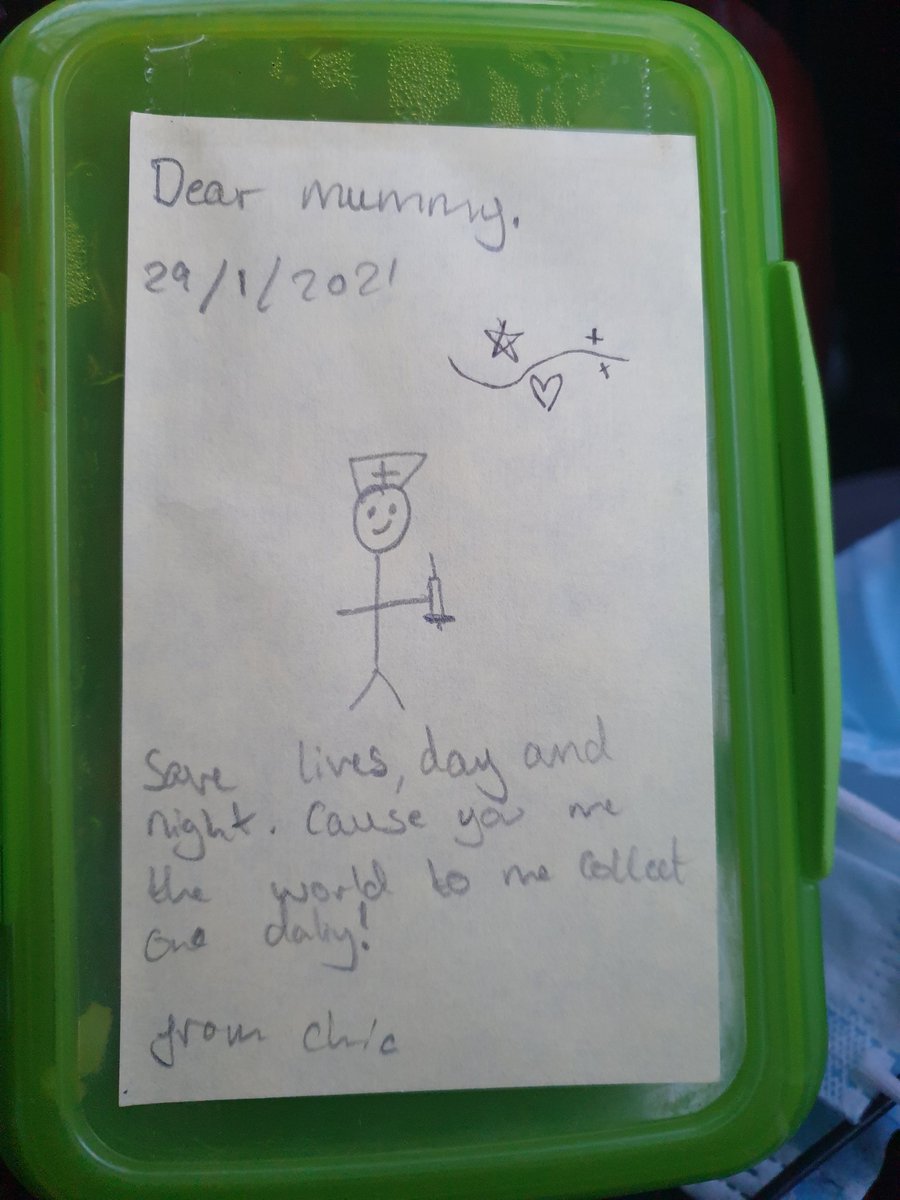 Dear mummy.
29/1/2021
Save lives, day and
night. Cause you me
the world to me collect
one daliy!
from chic